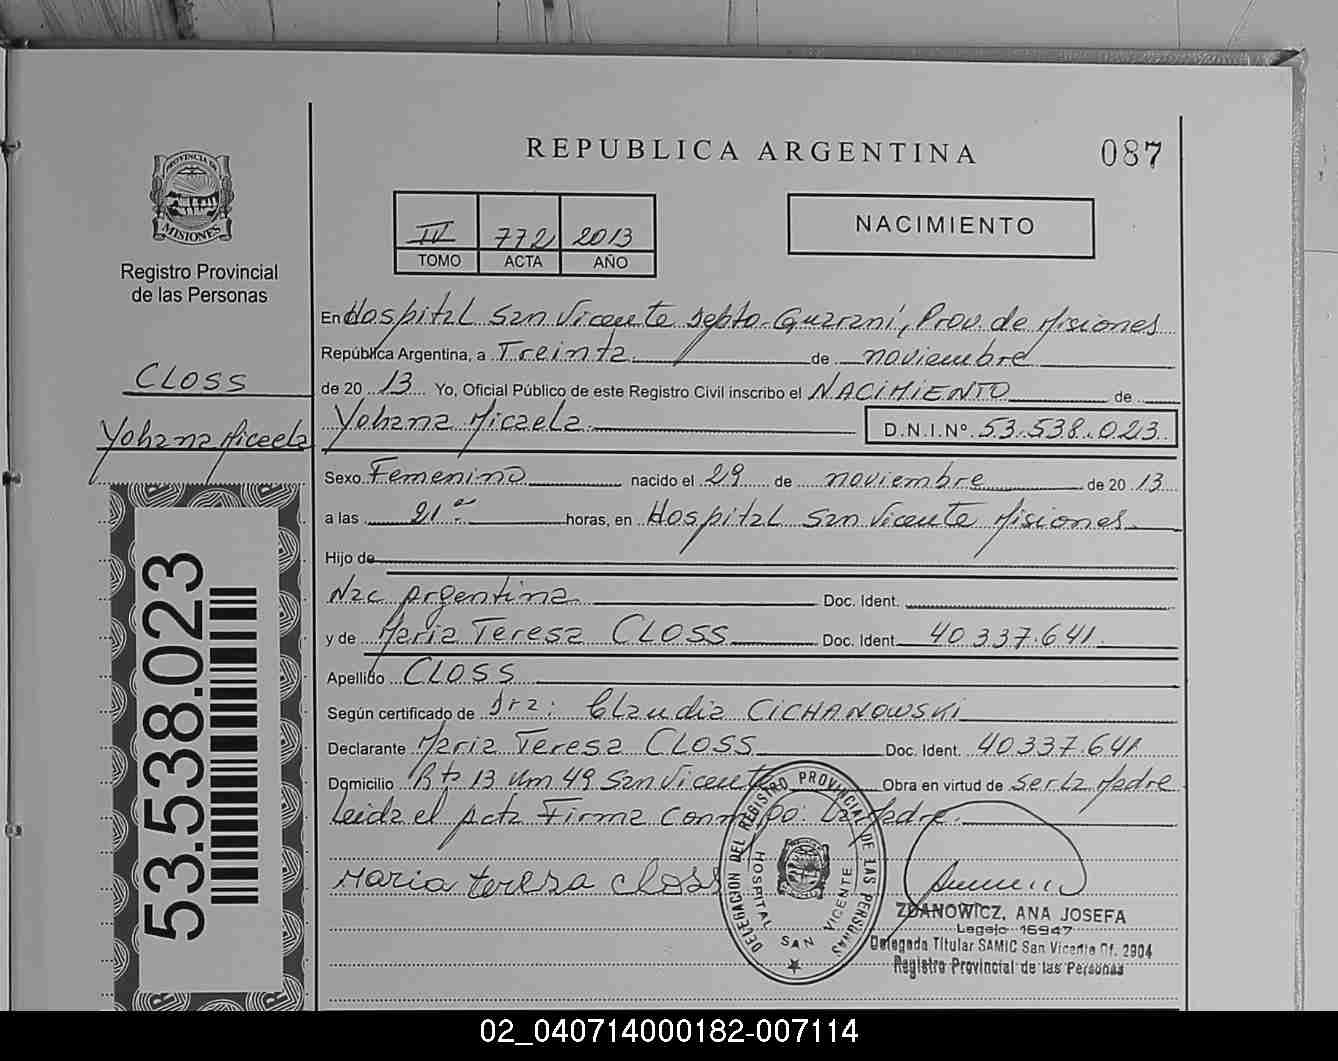 REPUBLICA ARGENTINA
087
PROVINCIA DE
MISIONES
Registro Provincial
de las Personas
IV 772 2013
TOMO ACTA AÑO
NACIMIENTO
CLOSS
Yohana Micaela
53.538.023
En Hospital San Vicente Depto. Guaraní, Prov. de Misiones
República Argentina, a Treinta de noviembre
de 20 13 Yo, Oficial Público de este Registro Civil inscribo el NACIMIENTO de
Yohana Micaela D.N.I.Nº 53.538.023
Sexo Femenino nacido el 29 de noviembre de 20 13
a las 21 horas, en Hospital San Vicente Misiones
Hijo de
Nac Argentina Doc. Ident.
y de Maria Teresa CLOSS Doc. Ident. 40.337.641
Apellido CLOSS
Según certificado de Dra: Claudia CICHANOWSKI
Declarante Maria Teresa CLOSS Doc. Ident. 40.337.641
Domicilio Rta 13 Km 49 San Vicente Obra en virtud de ser la Madre
Leida el Acta Firma Conmigo: La Madre.
Maria teresa closs
DELEGACION DEL REGISTRO PROVINCIAL DE LAS PERSONAS
HOSPITAL SAN VICENTE
ZDANOWICZ, ANA JOSEFA
Legajo 16947
Delegada Titular SAMIC San Vicente Of. 2904
Registro Provincial de las Personas
02_040714000182-007114